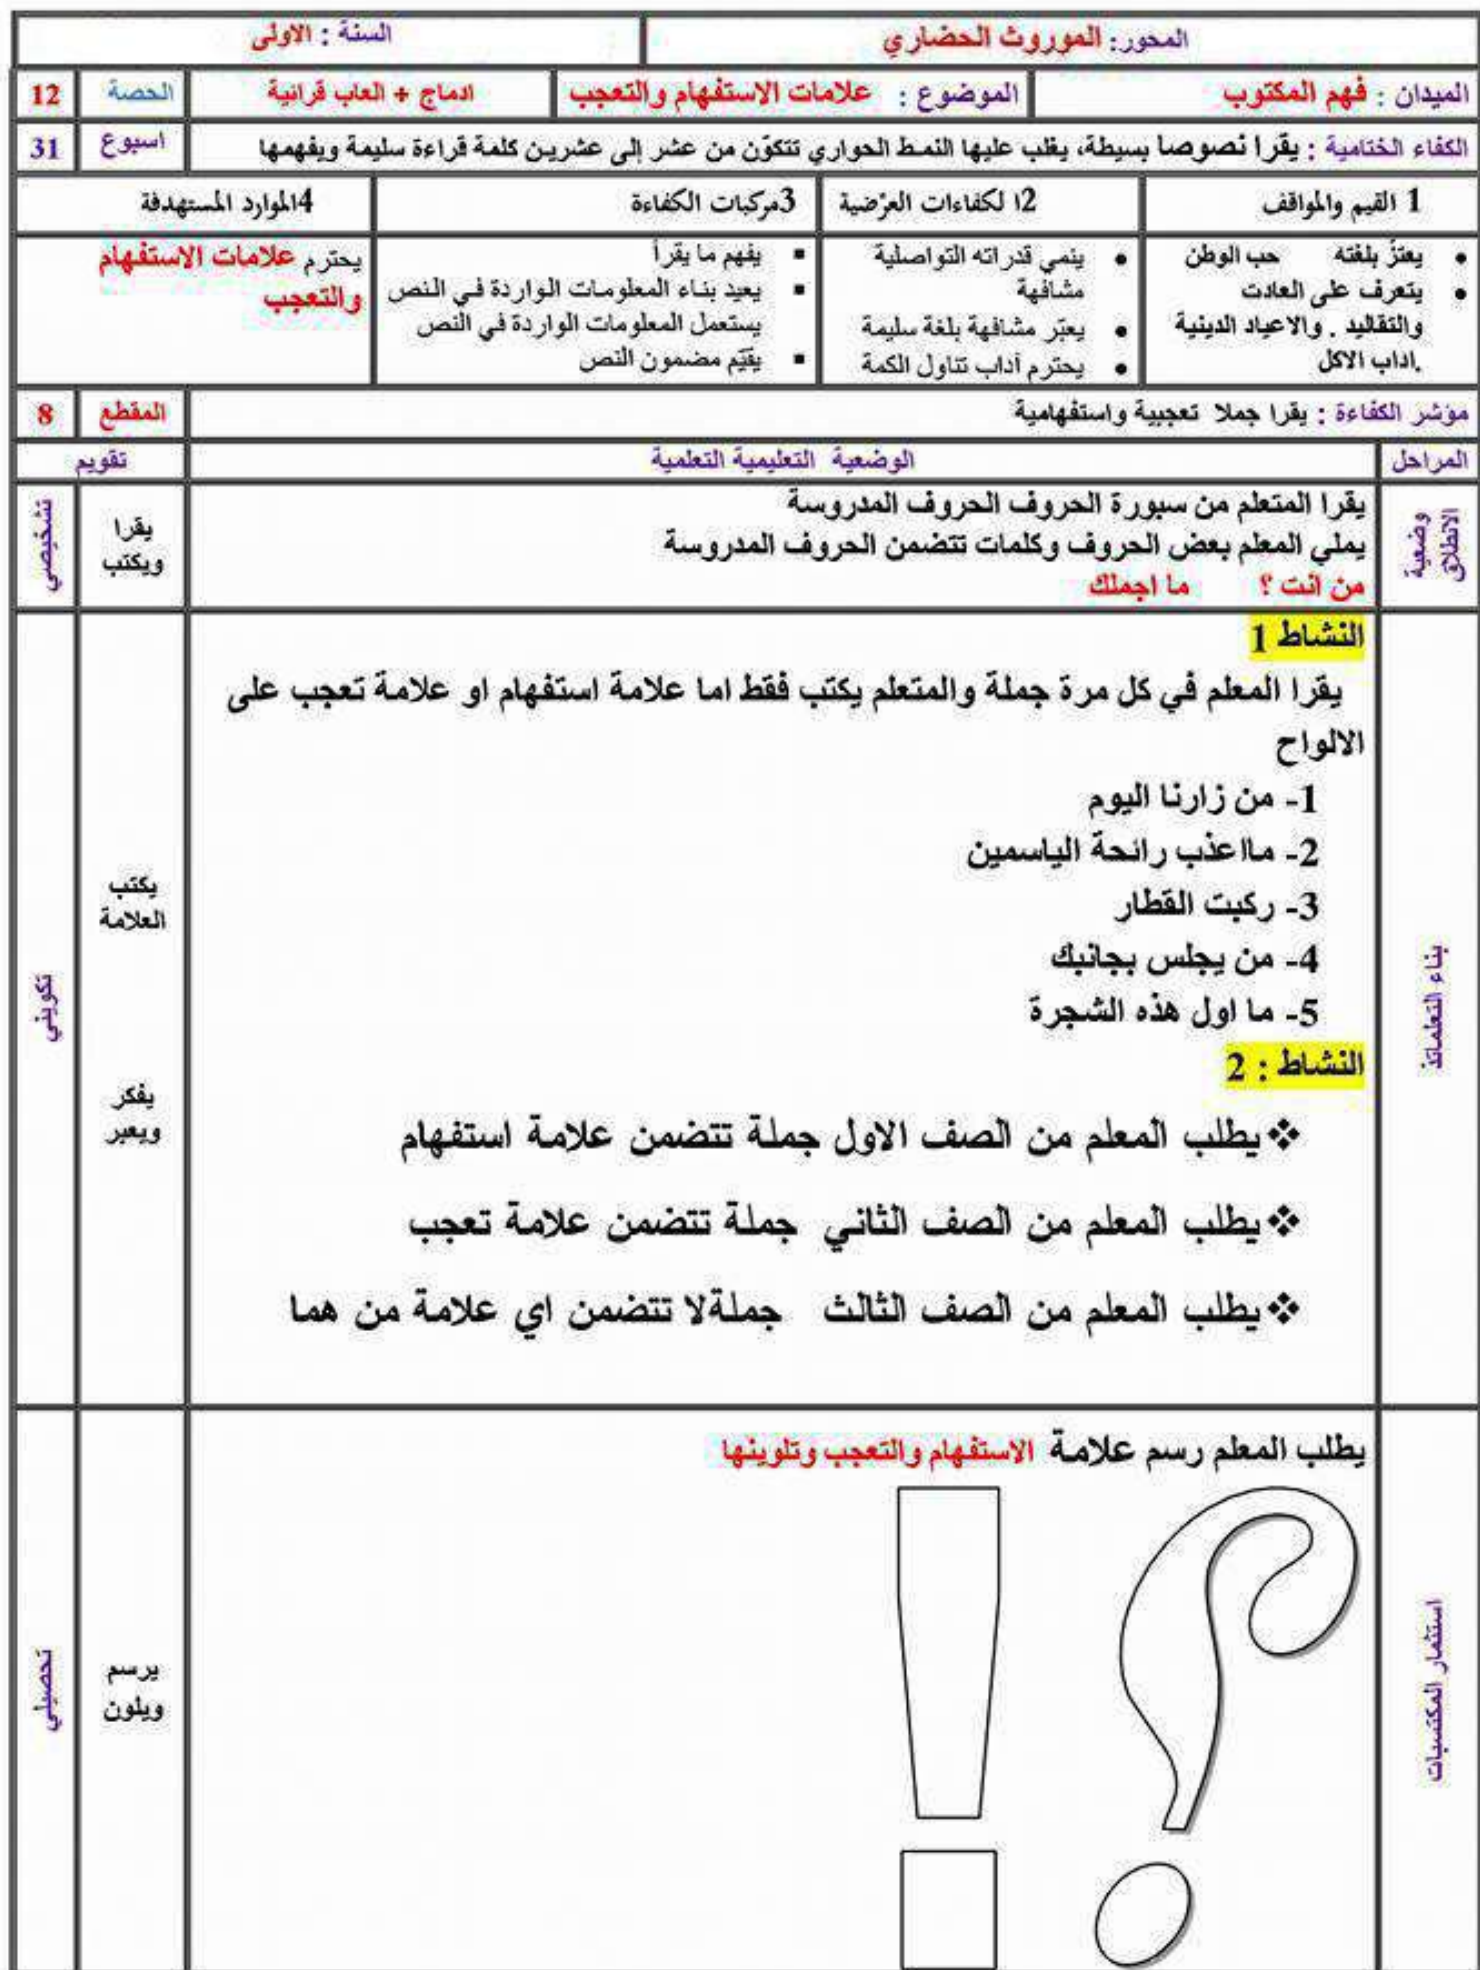 المحور: الموروث الحضاري
السنة : الاولى
الميدان : فهم المكتوب
الموضوع : علامات الاستفهام والتعجب
ادماج + العاب قرائية
الحصة
12
الكفاء الختامية : يقرا نصوصا بسيطة، يغلب عليها النمط الحواري تتكوّن من عشر إلى عشرين كلمة قراءة سليمة ويفهمها
اسبوع
31
1 القيم والمواقف
2ا لكفاءات العرْضية
3مركبات الكفاءة
4الموارد المستهدفة
• يعتزّ بلغته حب الوطن
• يتعرف على العادت
والتقاليد . والاعياد الدينية
.اداب الاكل
• ينمي قدراته التواصلية
مشافهة
• يعبّر مشافهة بلغة سليمة
• يحترم آداب تناول الكمة
▪ يفهم ما يقرأ
▪ يعيد بناء المعلومات الواردة في النص
يستعمل المعلومات الواردة في النص
▪ يقيّم مضمون النص
يحترم علامات الاستفهام
والتعجب
مؤشر الكفاءة : يقرا جملا تعجبية واستفهامية
المقطع
8
المراحل
الوضعية التعليمية التعلمية
تقويم
وضعية
الانطلاق
يقرا المتعلم من سبورة الحروف الحروف المدروسة
يملي المعلم بعض الحروف وكلمات تتضمن الحروف المدروسة
من انت ؟ ما اجملك
يقرا
ويكتب
تشخيصي
بناء التعلماتذ
النشاط 1
يقرا المعلم في كل مرة جملة والمتعلم يكتب فقط اما علامة استفهام او علامة تعجب على
الالواح
1- من زارنا اليوم
2- مااعذب رائحة الياسمين
3- ركبت القطار
4- من يجلس بجانبك
5- ما اول هذه الشجرة
النشاط : 2
❖ يطلب المعلم من الصف الاول جملة تتضمن علامة استفهام
❖ يطلب المعلم من الصف الثاني جملة تتضمن علامة تعجب
❖ يطلب المعلم من الصف الثالث جملةلا تتضمن اي علامة من هما
يكتب
العلامة
يفكر
ويعبر
تكويني
استثمار المكتسبات
يطلب المعلم رسم علامة الاستفهام والتعجب وتلوينها
؟ !
يرسم
ويلون
تحصيلي